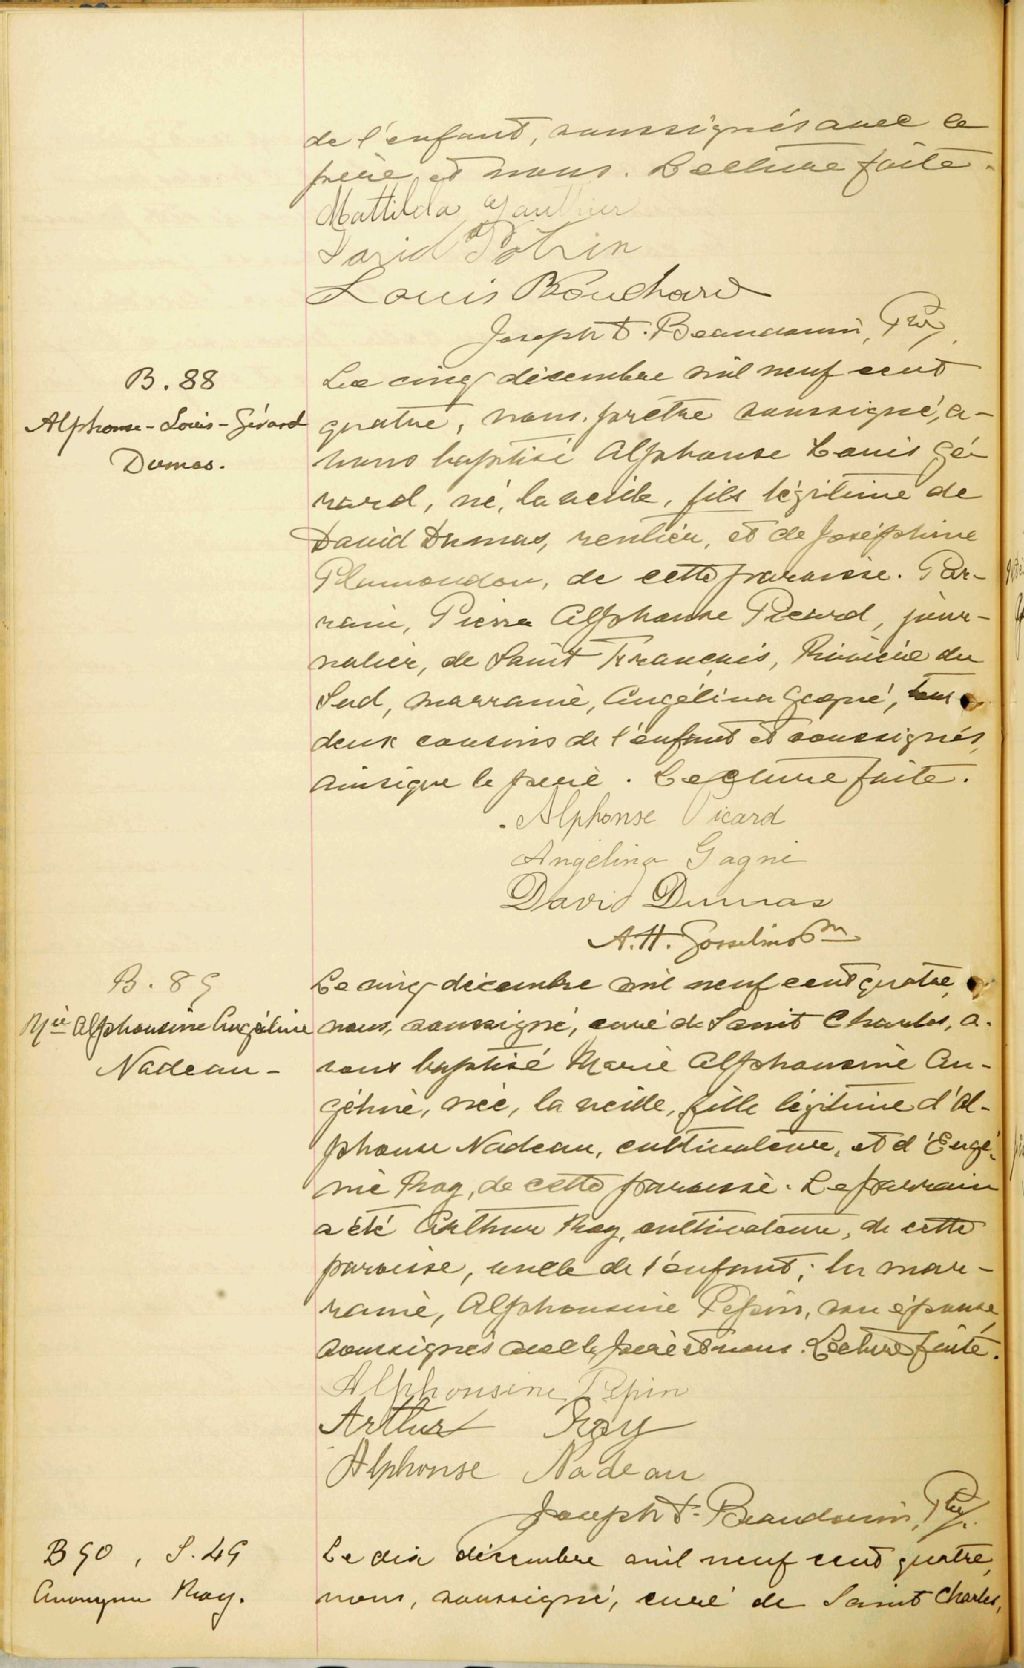 de l'enfant, soussignés avec le
père et nous. Lecture faite.
Mattilda Gauthier
David Potvin
Louis Bouchard
Joseph D. Beaudouin, Ptre
B. 88
Alphonse-Louis-Gérard
Dumas.
Le cinq décembre mil neuf cent
quatre, nous, prêtre soussigné, a-
vons baptisé Alphonse Louis Gé-
rard, né, la veille, fils légitime de
David Dumas, rentier, et de Joséphine
Plamondon, de cette paroisse. Par-
rain, Pierre Alphonse Picard, jour-
nalier, de Saint François, Rivière du
Sud, marraine, Angélina Gagné, tous
deux cousins de l'enfant et soussignés,
ainsi que le père. Lecture faite.
Alphonse Picard
Angélina Gagné
David Dumas
A.H. Gosselin Ptre
B. 89
Mie Alphonsine Angéline
Nadeau -
Le cinq décembre mil neuf cent quatre,
nous, soussigné, curé de Saint Charles, a-
vons baptisé Marie Alphonsine An-
géline, née, la veille, fille légitime d'Al-
phonse Nadeau, cultivateur, et d'Eugé-
nie Roy, de cette paroisse. Le parrain
a été Arthur Roy, cultivateur, de cette
paroisse, oncle de l'enfant; la mar-
raine, Alphonsine Pepin, son épouse,
soussignés avec le père et nous. Lecture faite.
Alphonsine Pepin
Arthur Roy
Alphonse Nadeau
Joseph D. Beaudouin, Ptre.
B 90, S. 49
Anonyme Roy.
Le dix décembre mil neuf cent quatre,
nous, soussigné, curé de Saint Charles,